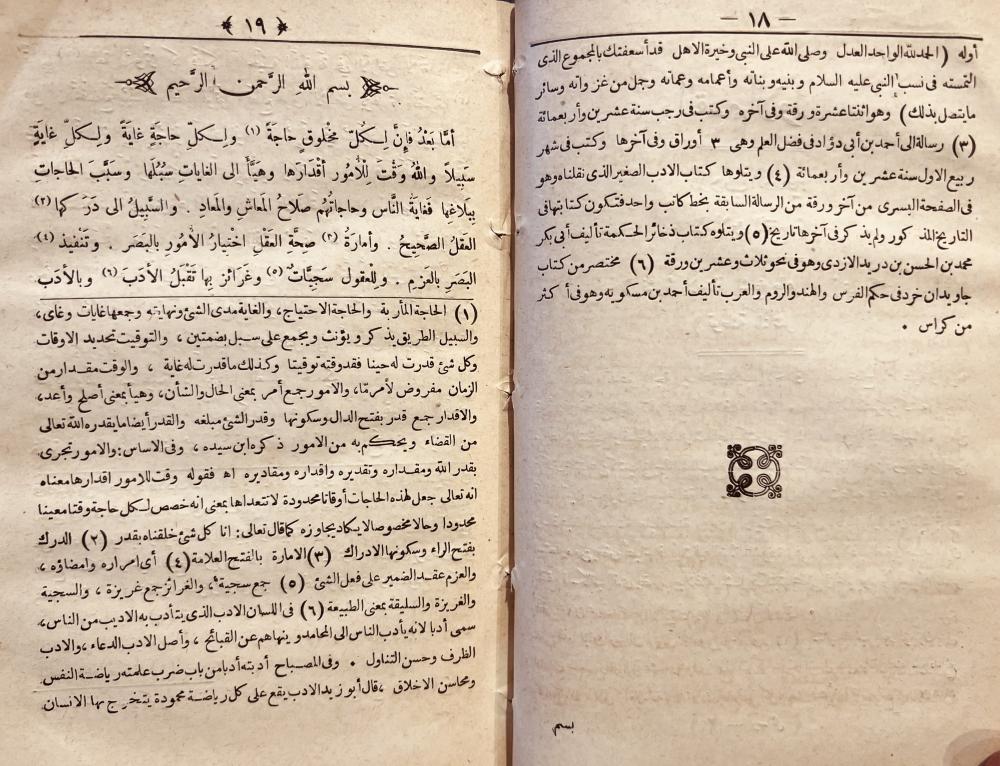 — ١٨ —
أوله (الحمدلله الواحد العدل وصلى الله على النبى وخيرة الاهل قد أسعفتك بالمجموع الذى
التمسته فى نسب النبي عليه السلام وبنيه وبناته وأعمامه وعماته وجمل من غزواته وسائر
ما يتصل بذلك) وهو اثنتا عشرة ورقة وفى آخره وكتب فى رجب سنة عشرين وأربعمائة
(٣) رسالة الى أحمد بن أبى دؤاد فى فضل العلم وهى ٣ أوراق وفى آخرها وكتب فى شهر
ربيع الاول سنة عشرين وأربعمائة (٤) ويتلوها كتاب الادب الصغير الذى نقلناه وهو
فى الصفحة اليسرى من آخر ورقة من الرسالة السابقة بخط كاتب واحد فتكون كتابتها فى
التاريخ المذكور ولم يذكر فى آخرها تاريخ (٥) ويتلوه كتاب ذخائر الحكمة تأليف أبى بكر
محمد بن الحسن بن دريد الازدى وهو فى نحو ثلاث وعشرين ورقة (٦) مختصر من كتاب
جاويدان خرد فى حكم الفرس والهند والروم والعرب تأليف أحمد بن مسكويه وهو فى أكثر
من كراس .
بسم
﴿ ١٩ ﴾
بسم الله الرَّحمن الرَّحيم
أمَّا بَعْدُ فإِنَّ لِكُلّ مخْلوق حاجَةً (١) ولِكلّ حاجَةٍ غايَةً ولِكلّ غايَةٍ
سَبِيلاً واللهُ وَقَّتَ لِلْأُمورِ أقْدَارَها وهيَّأَ الى الغاياتِ سُبُلَها وسَبَّبَ الحاجاتِ
بِبَلاغها فغايةُ النَّاس وحاجاتُهم صلاحُ المعاشِ والمَعادِ . والسَّبيلُ الى دَرَكها (٢)
العقلُ الصَّحِيحُ . وأمارَةُ (٣) صِحَّةِ العَقْلِ اختِيارُ الأُمورِ بالبَصَرِ . وتَنْفيذ (٤)
البَصَرِ بالعَزيمِ . ولِلعقولِ سَجيَّاتٌ (٥) وغَرائز بها تَقْبَلُ الأدَبَ (٦) وبالأدَبِ
(١) الحاجة المأربة والحاجة الاحتياج، والغاية مدى الشئ ونهايته وجمعها غايات وغاى،
والسبيل الطريق يذكر ويؤنث ويجمع على سبل بضمتين ، والتوقيت تحديد الاوقات
وكل شئ قدرت له حينا فقد وقته توقيتا وكذلك ما قدرت له غاية ، والوقت مقدار من
الزمان مفروض لأمر مّا، والامور جمع أمر بمعنى الحال والشأن، وهيأ بمعنى أصلح وأعد،
والاقدار جمع قدر بفتح الدال وسكونها وقدر الشئ مبلغه والقدر أيضا ما يقدره الله تعالى
من القضاء ويحكم به من الامور ذكره ابن سيده ، وفى الاساس: والامور تجرى
بقدر الله ومقداره وتقديره واقداره ومقاديره اه فقوله وقت للامور اقدارها معناه
انه تعالى جعل لهذه الحاجات أوقاتا محدودة لا تتعداها بمعنى انه خصص لكل حاجة وقتا معينا
محدودا وحالا مخصوصا لا يكاد يجاوزه كما قال تعالى: انا كل شئ خلقناه بقدر (٢) الدرك
بفتح الراء وسكونها الادراك (٣) الامارة بالفتح العلامة (٤) أى امراره وامضاؤه ،
والعزم عقد الضمير على فعل الشئ (٥) جمع سجية ، والغرائز جمع غريزة ، والسجية
والغريزة والسليقة بمعنى الطبيعة (٦) فى اللسان الادب الذى يتأدب به الاديب من الناس،
سمى أدبا لانه يأدب الناس الى المحامد وينهاهم عن القبائح ، وأصل الادب الدعاء ، والادب
الظرف وحسن التناول . وفى المصباح أدبته أدبا من باب ضرب علمته رياضة النفس
ومحاسن الاخلاق ، قال أبو زيد الادب يقع على كل رياضة محمودة يتخرج بها الانسان